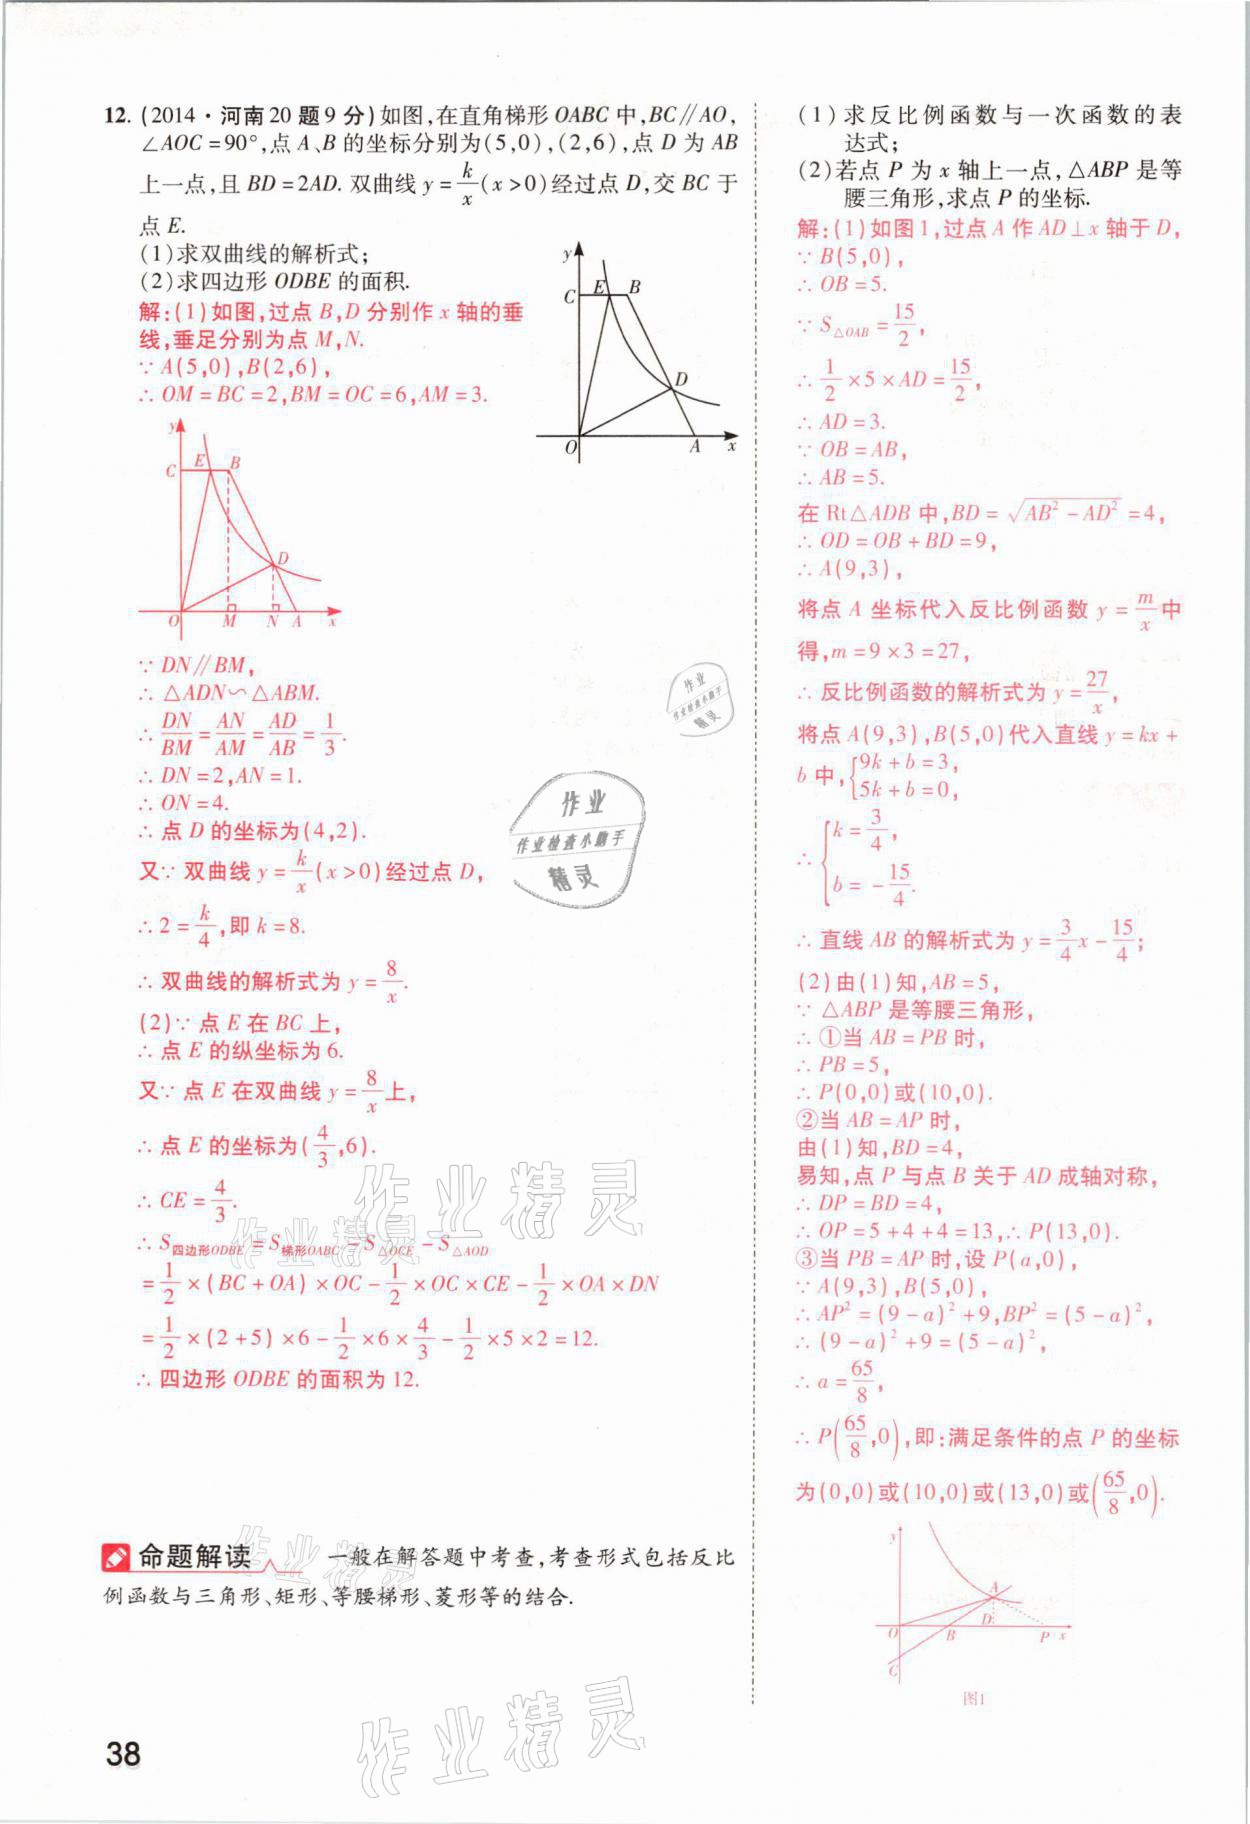 12. (2014·河南20题9分)如图,在直角梯形OABC中,BC∥AO,
∠AOC=90°,点A、B的坐标分别为(5,0),(2,6),点D为AB
上一点,且BD=2AD. 双曲线y=k/x(x>0)经过点D,交BC于
点E.
(1)求双曲线的解析式;
(2)求四边形ODBE的面积.
y
C E B
D
O A x
解:(1)如图,过点B,D分别作x轴的垂
线,垂足分别为点M,N.
∵A(5,0),B(2,6),
∴OM=BC=2,BM=OC=6,AM=3.
y
C E B
D
O M N A x
∵DN∥BM,
∴△ADN∽△ABM.
∴DN/BM=AN/AM=AD/AB=1/3.
∴DN=2,AN=1.
∴ON=4.
∴点D的坐标为(4,2).
又∵双曲线y=k/x(x>0)经过点D,
∴2=k/4,即k=8.
∴双曲线的解析式为y=8/x.
(2)∵点E在BC上,
∴点E的纵坐标为6.
又∵点E在双曲线y=8/x上,
∴点E的坐标为(4/3,6).
∴CE=4/3.
∴S四边形ODBE=S梯形OABC-S△OCE-S△AOD
=1/2×(BC+OA)×OC-1/2×OC×CE-1/2×OA×DN
=1/2×(2+5)×6-1/2×6×4/3-1/2×5×2=12.
∴四边形ODBE的面积为12.
命题解读 一般在解答题中考查,考查形式包括反比
例函数与三角形、矩形、等腰梯形、菱形等的结合.
38
(1)求反比例函数与一次函数的表
达式;
(2)若点P为x轴上一点,△ABP是等
腰三角形,求点P的坐标.
解:(1)如图1,过点A作AD⊥x轴于D,
∵B(5,0),
∴OB=5.
∵S△OAB=15/2,
∴1/2×5×AD=15/2,
∴AD=3.
∵OB=AB,
∴AB=5.
在Rt△ADB中,BD=√(AB²-AD²)=4,
∴OD=OB+BD=9,
∴A(9,3),
将点A坐标代入反比例函数y=m/x中
得,m=9×3=27,
∴反比例函数的解析式为y=27/x,
将点A(9,3),B(5,0)代入直线y=kx+
b中,{9k+b=3,
5k+b=0,
∴{k=3/4,
b=-15/4.
∴直线AB的解析式为y=3/4x-15/4;
(2)由(1)知,AB=5,
∵△ABP是等腰三角形,
∴①当AB=PB时,
∴PB=5,
∴P(0,0)或(10,0).
②当AB=AP时,
由(1)知,BD=4,
易知,点P与点B关于AD成轴对称,
∴DP=BD=4,
∴OP=5+4+4=13,∴P(13,0).
③当PB=AP时,设P(a,0),
∵A(9,3),B(5,0),
∴AP²=(9-a)²+9,BP²=(5-a)²,
∴(9-a)²+9=(5-a)²,
∴a=65/8,
∴P(65/8,0),即:满足条件的点P的坐标
为(0,0)或(10,0)或(13,0)或(65/8,0).
y
A
O B D P x
C
图1
作业
作业检查小助手
精灵
作业
作业检查小助手
精灵
作业精灵
作业精灵
作业精灵
作业精灵